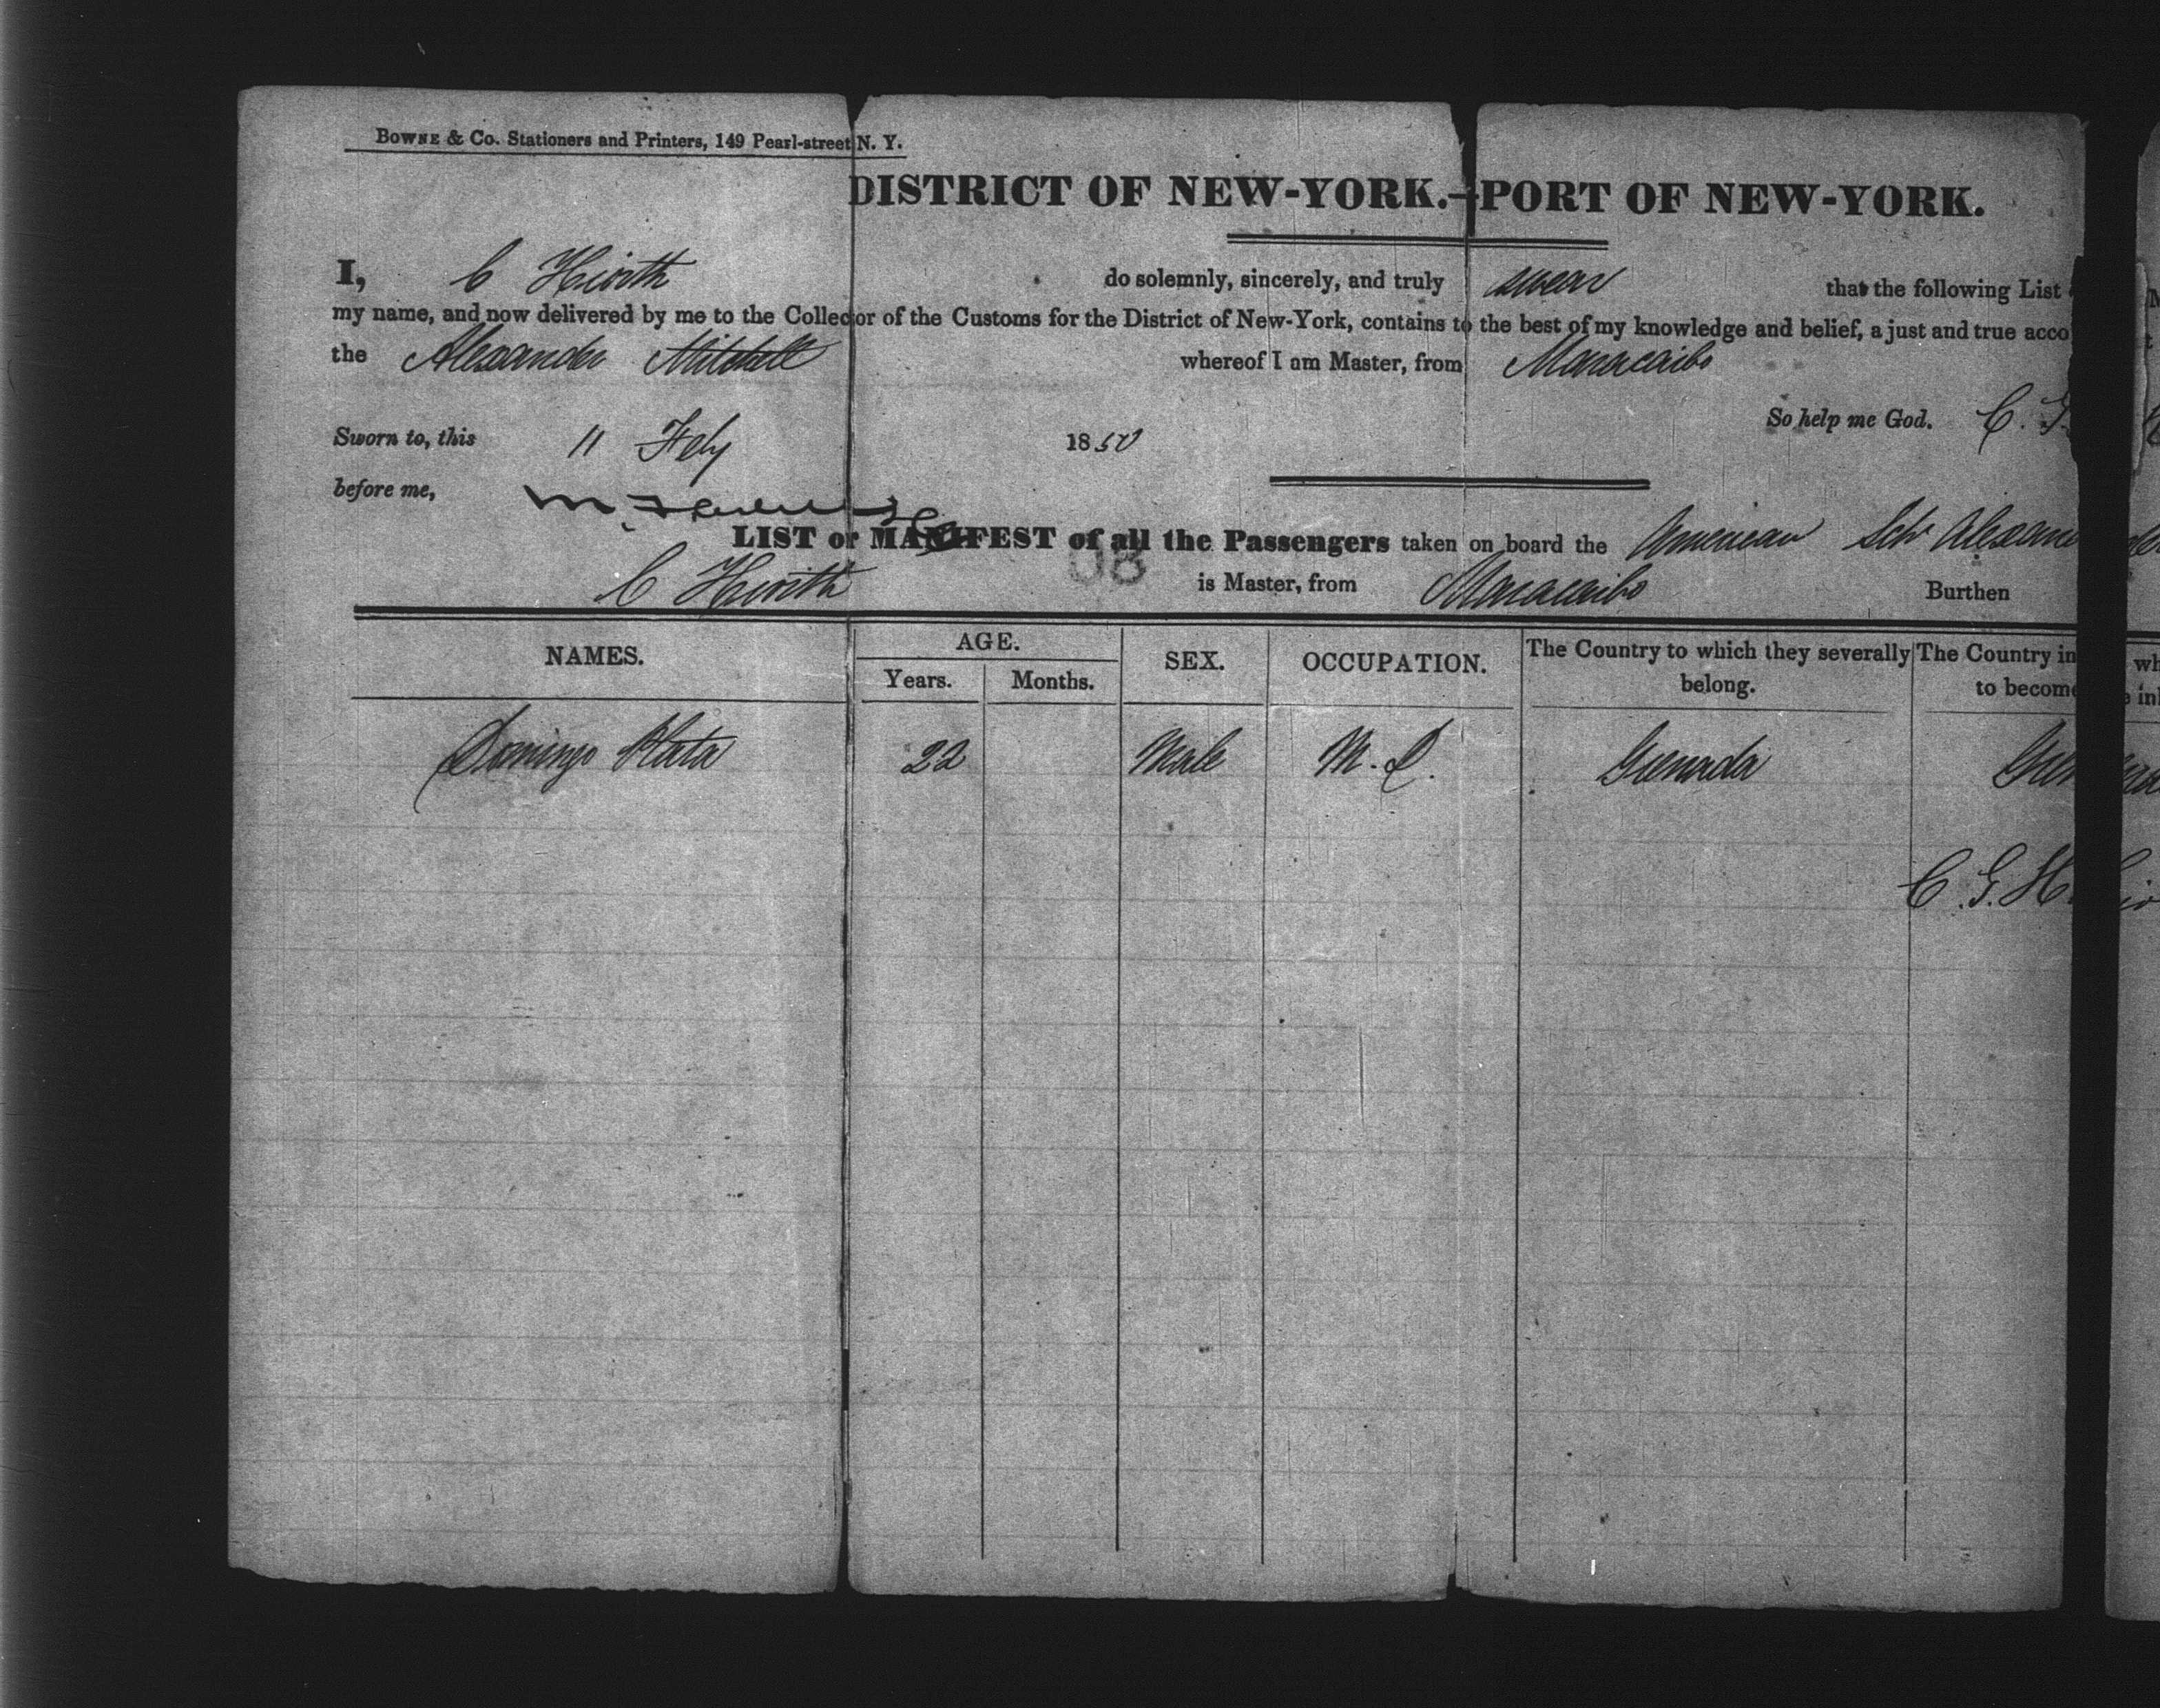 BOWNE & Co. Stationers and Printers, 149 Pearl-street N. Y.
DISTRICT OF NEW-YORK.—PORT OF NEW-YORK.
I, C Hirth do solemnly, sincerely, and truly swear that the following List
my name, and now delivered by me to the Collector of the Customs for the District of New-York, contains to the best of my knowledge and belief, a just and true acco
the Alexander Mitchell whereof I am Master, from Maracaibo
So help me God. C.
Sworn to, this 11 Feby 1850
before me,
LIST or MANIFEST of all the Passengers taken on board the American Schr Alexan
C Hirth is Master, from Maracaibo Burthen
NAMES. AGE. SEX. OCCUPATION. The Country to which they severally belong. The Country in
Years. Months. to become
Domingo Plata 22 Male Grenada
C. G. H